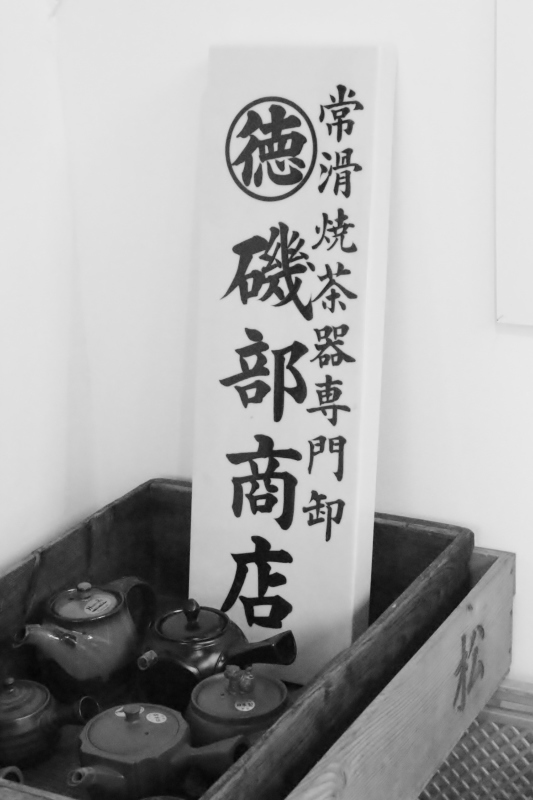 常滑焼茶器専門卸
徳磯部商店
松